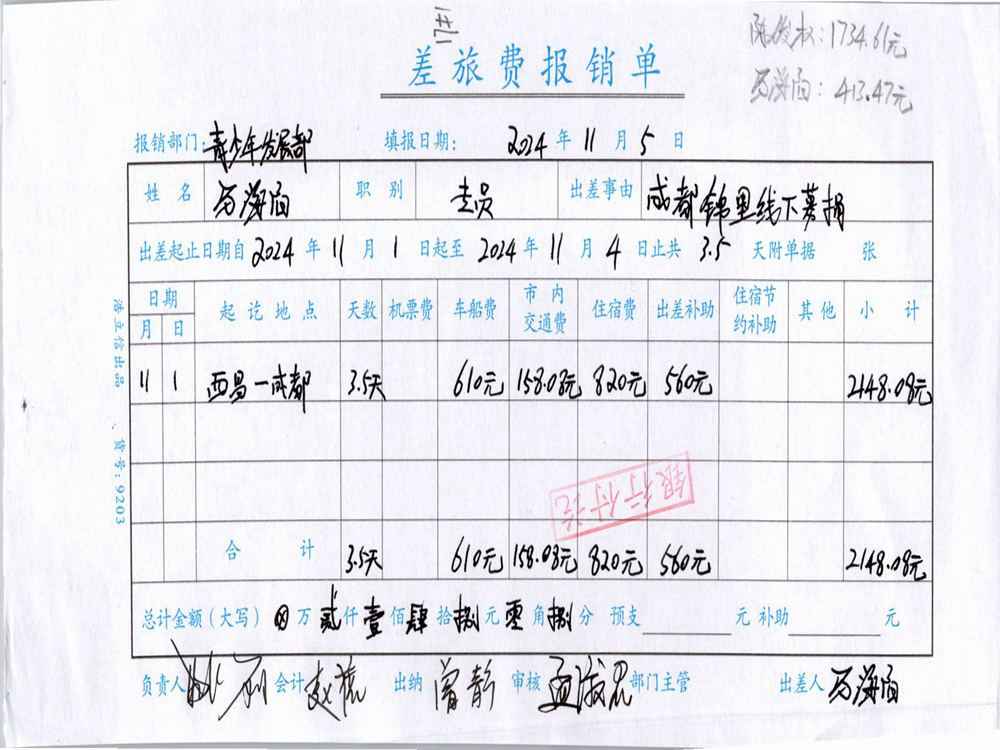 17#1
陈俊松：1734.61元
413.47元
差旅费报销单
报销部门：青少年发展部 填报日期： 2024 年 11 月 5 日
姓名 马海 职别 专员 出差事由 成都锦里线下募捐
出差起止日期自 2024 年 11 月 1 日起至 2024 年 11 月 4 日止共 3.5 天附单据 张
日期 起讫地点 天数 机票费 车船费 市内交通费 住宿费 出差补助 住宿节约补助 其他 小计
月 日
11 1 西昌—成都 3.5天 610元 158.08元 820元 560元 2148.08元
银行付讫
合计 3.5天 610元 158.08元 820元 560元 2148.08元
总计金额(大写) ⊗ 万 贰 仟 壹 佰 肆 拾 捌 元 零 角 捌 分 预支 元 补助 元
负责人 会计 出纳 曾静 审核 部门主管 出差人 马海
浩立信出品 货号：9203